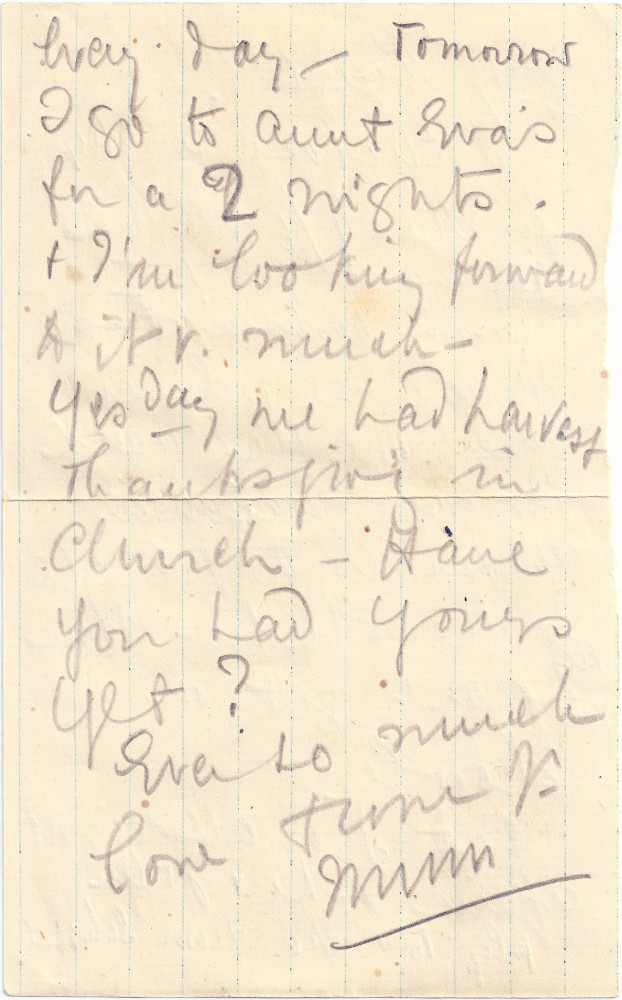 Every day — Tomorrow
I go to Aunt Eva's
for a 2 nights.
+ I'm looking forward
to it v. much —
Yesday we had harvest
thanksgivi in
Church — Have
you had yours
yet?
Ever so much
love from Yr
Mum